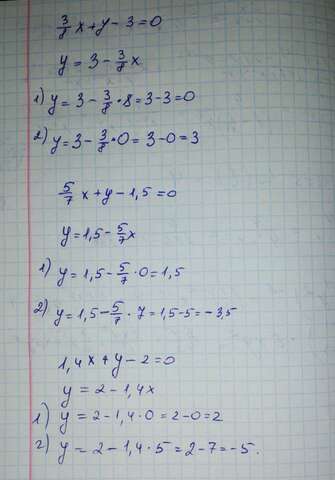 3/8 x + y - 3 = 0
y = 3 - 3/8 x
1) y = 3 - 3/8 * 8 = 3 - 3 = 0
2) y = 3 - 3/8 * 0 = 3 - 0 = 3
5/7 x + y - 1,5 = 0
y = 1,5 - 5/7 x
1) y = 1,5 - 5/7 · 0 = 1,5
2) y = 1,5 - 5/7 · 7 = 1,5 - 5 = - 3,5
1,4x + y - 2 = 0
y = 2 - 1,4x
1) y = 2 - 1,4 · 0 = 2 - 0 = 2
2) y = 2 - 1,4 · 5 = 2 - 7 = - 5.